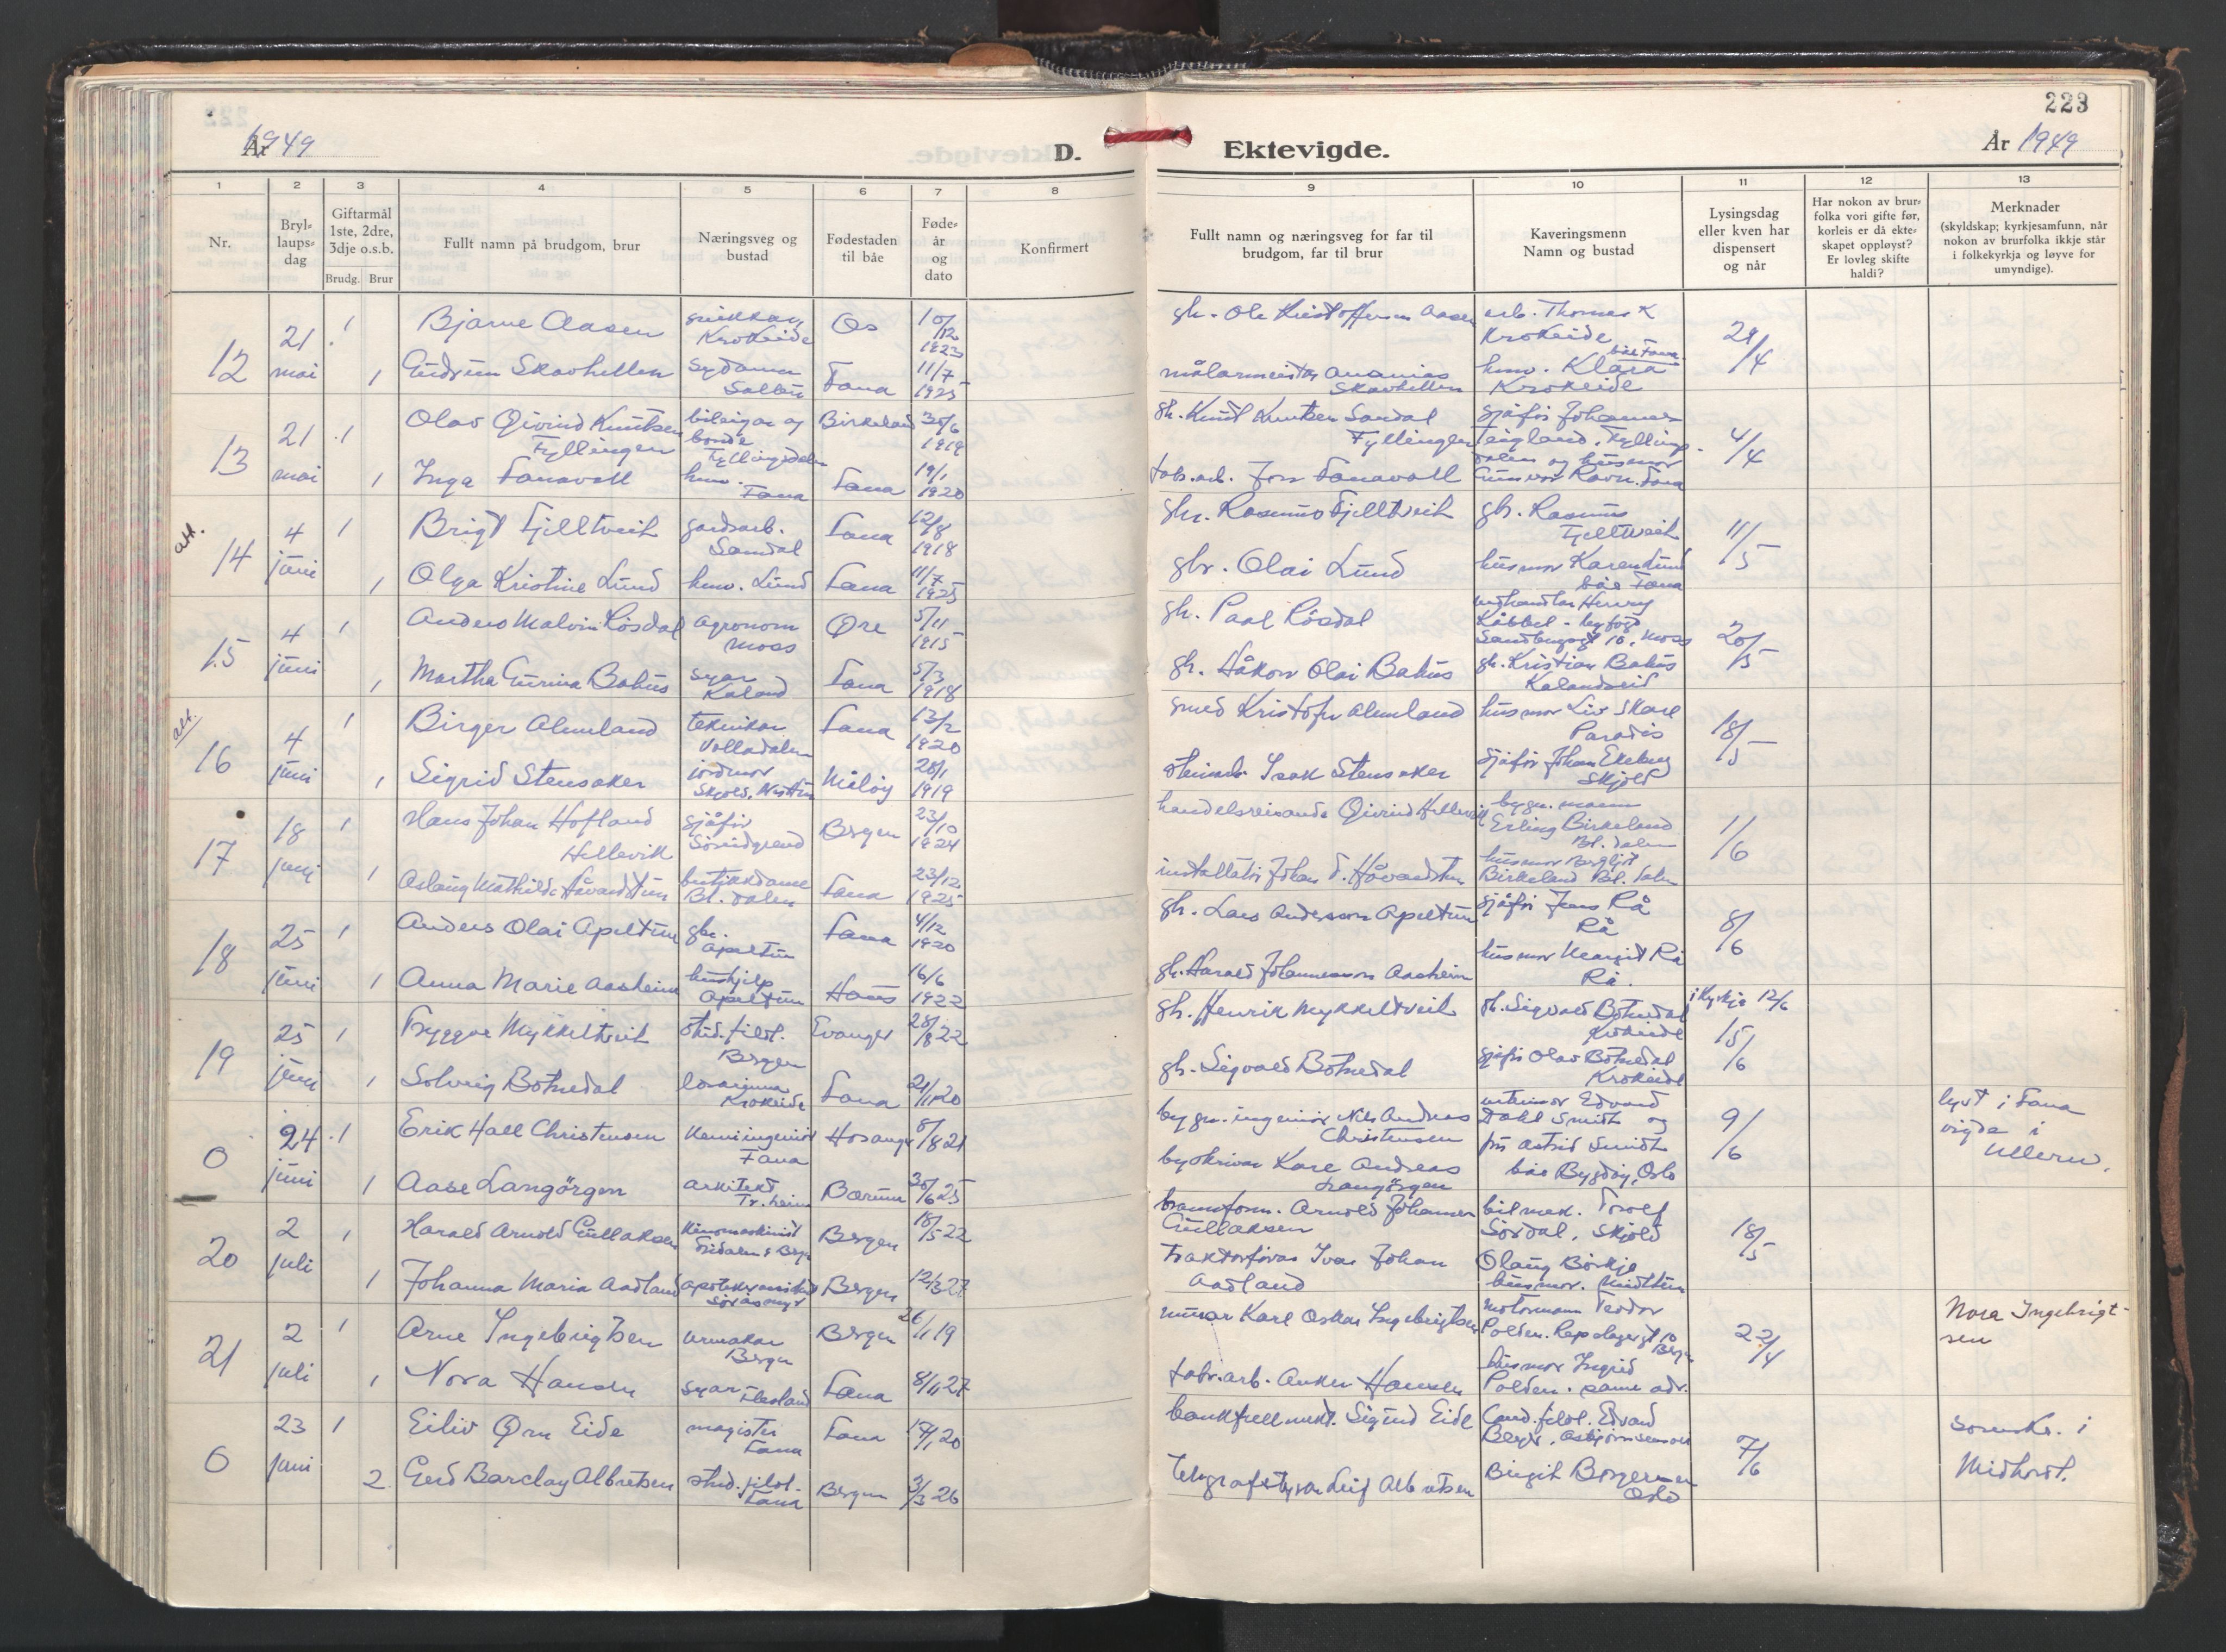 223
År 1949
D.
Ektevigde.
År 1949
1
2
3
4
5
6
7
8
9
10
11
12
13
Nr.
Bryl-
laups-
dag
Giftarmål
1ste, 2dre,
3dje o.s.b.
Brudg. Brur
Fullt namn på brudgom, brur
Næringsveg og
bustad
Fødestaden
til båe
Føde-
år
og
dato
Konfirmert
Fullt namn og næringsveg for far til
brudgom, far til brur
Kaveringsmenn
Namn og bustad
Lysingsdag
eller kven har
dispensert
og når
Har nokon av brur-
folka vori gifte før,
korleis er då ekte-
skapet oppløyst?
Er lovleg skifte
haldi?
Merknader
(skyldskap; kyrkjesamfunn, når
nokon av brurfolka ikkje står
i folkekyrkja og løyve for
umyndige).
12
21
mai
1
Bjarne Aasen
Krokeide
Os
10/12
1923
gb. Ole Kristoffersen Aasen
arb. Thomas K
Krokeide
29/4
1
Gudrun Skavhellen
Sydame
Fana
11/7
1925
målarmeister Ananias
Skavhellen
båe Fana
hmv. Klara
Krokeide
13
21
mai
1
Olav Øivind Knutsen
Fyllingen
bileigar og
bonde
Fyllingsdalen
Birkeland
30/6
1919
gb. Knut Knutsen Sandal
Fyllingen
sjåfør Johannes
Teigland, Fyllings-
dalen og husmor
Gunvor Ravn. Fana
4/4
1
Inga Fanavoll
hmv.
Fana
Fana
19/1
1920
fab.arb. Jon Fanavoll
att.
14
4
juni
1
Brigt Fjelltveit
gardsarb.
Sandal
Fana
12/8
1918
gbr. Rasmus Fjelltveit
gb. Rasmus
Fjelltveit
11/5
1
Olga Kristine Lund
hmv. Lund
Fana
11/7
1925
gbr. Olai Lund
husmor Karen Lund
båe Fana
15
4
juni
1
Anders Malvin Røsdal
Agronom
Moss
Øre
5/11
1915
gb. Paal Røsdal
vedhandlar Henry
Sandbugst 10, Moss
20/5
1
Martha Gurina Bahus
syar
Kaland
Fana
5/3
1918
gb. Håkon Olai Bahus
gb. Kristian Bahus
Kalandseid
att.
16
4
juni
1
Birger Almeland
teknikar
Volladalen
Fana
13/2
1920
smed Kristofer Almeland
husmor Liv Skare
Paradis
18/5
1
Sigrid Stensaker
jordmor
Skjold, Nesttun
Måløy
28/1
1919
steinarb. Isak Stensaker
sjåfør Johan Ekeberg
Skjold
17
18
juni
1
Hans Johan Hofland
Hellevik
sjåfør
Søreidgrend
Bergen
23/10
1924
handelsreisande Øivind Hellevik
bygn. mann
Erling Birkeland
Bl. dalen
1/6
1
Aslaug Mathilde Håvardstun
butikkdame
Bl. dalen
Fana
23/12
1925
installatør Johan D. Håvardstun
husmor Bergljot
Birkeland Bl. dalen
18
25
juni
1
Anders Olai Apeltun
gbr.
Apeltun
Fana
4/12
1920
gb. Lars Andersson Apeltun
sjåfør Jens Rå
Rå
8/6
1
Anna Marie Aasheim
hushjelp
Apeltun
Haus
16/6
1922
gb. Harald Johannesson Aasheim
husmor Margit Rå
Rå.
19
25
juni
1
Tryggve Mykkeltveit
stud. filol.
Bergen
Evanger
28/8 22
gb. Henrik Mykkeltveit
gb. Sigvald Botnedal
Krokeide
i kyrkja 12/6
15/6
1
Solveig Botnedal
lærarinna
Krokeide
Fana
21/11 20
gb. Sigvald Botnedal
sjåfør Olav Botnedal
Krokeide
0
24
juni
1
Erik Hall Christensen
Kemiingeniør
Fana
Hosanger
8/8 21
bygn. ingeniør Nils Andreas
Christensen
Edvard
Dahl Smith og
fru Astrid Smith
båe Bygdøy, Oslo
9/6
lyst i Fana
vigde i
Ullern.
1
Aase Langörgen
arkitekt
Tr. heim
Bærum
30/6 25
byskrivar Kare Andreas
Langörgen
20
2
juli
1
Harald Arnold Gullaksen
Kinomaskinist
Bergen
18/5 22
brannform. Arnold Johannes
Gullaksen
bilmek. Torolf
Sördal, Skjold
18/5
1
Johanna Maria Aadland
Söråsvegt
Bergen
12/3 27
Traktorförar Ivar Johan
Aadland
Olaug Börkje
husmor. Midttun
21
2
juli
1
Arne Ingebrigtsen
urmakar
Bergen
Bergen
26/1 19
murar Karl Oskar Ingebrigtsen
motormann Teodor
Polden. Repslagergt 10
Bergen
22/4
Nora Ingebrigt-
sen
1
Nora Hansen
syar
Flesland
Fana
8/11 27
fabr.arb. Anker Hansen
husmor Ingrid
Polden. same adr.
0
23
juni
1
Eiliv Örn Eide
magister
Fana
Fana
17/1 20
bankfullmekt. Sigurd Eide
Cand. filol. Edvard
7/6
i
Midhordl.
2
Gerd Barclay Albretsen
stud. filol.
Fana
Bergen
3/3 26
telegrafstyrar Leif Albretsen
Birgit Borgersen
Oslo